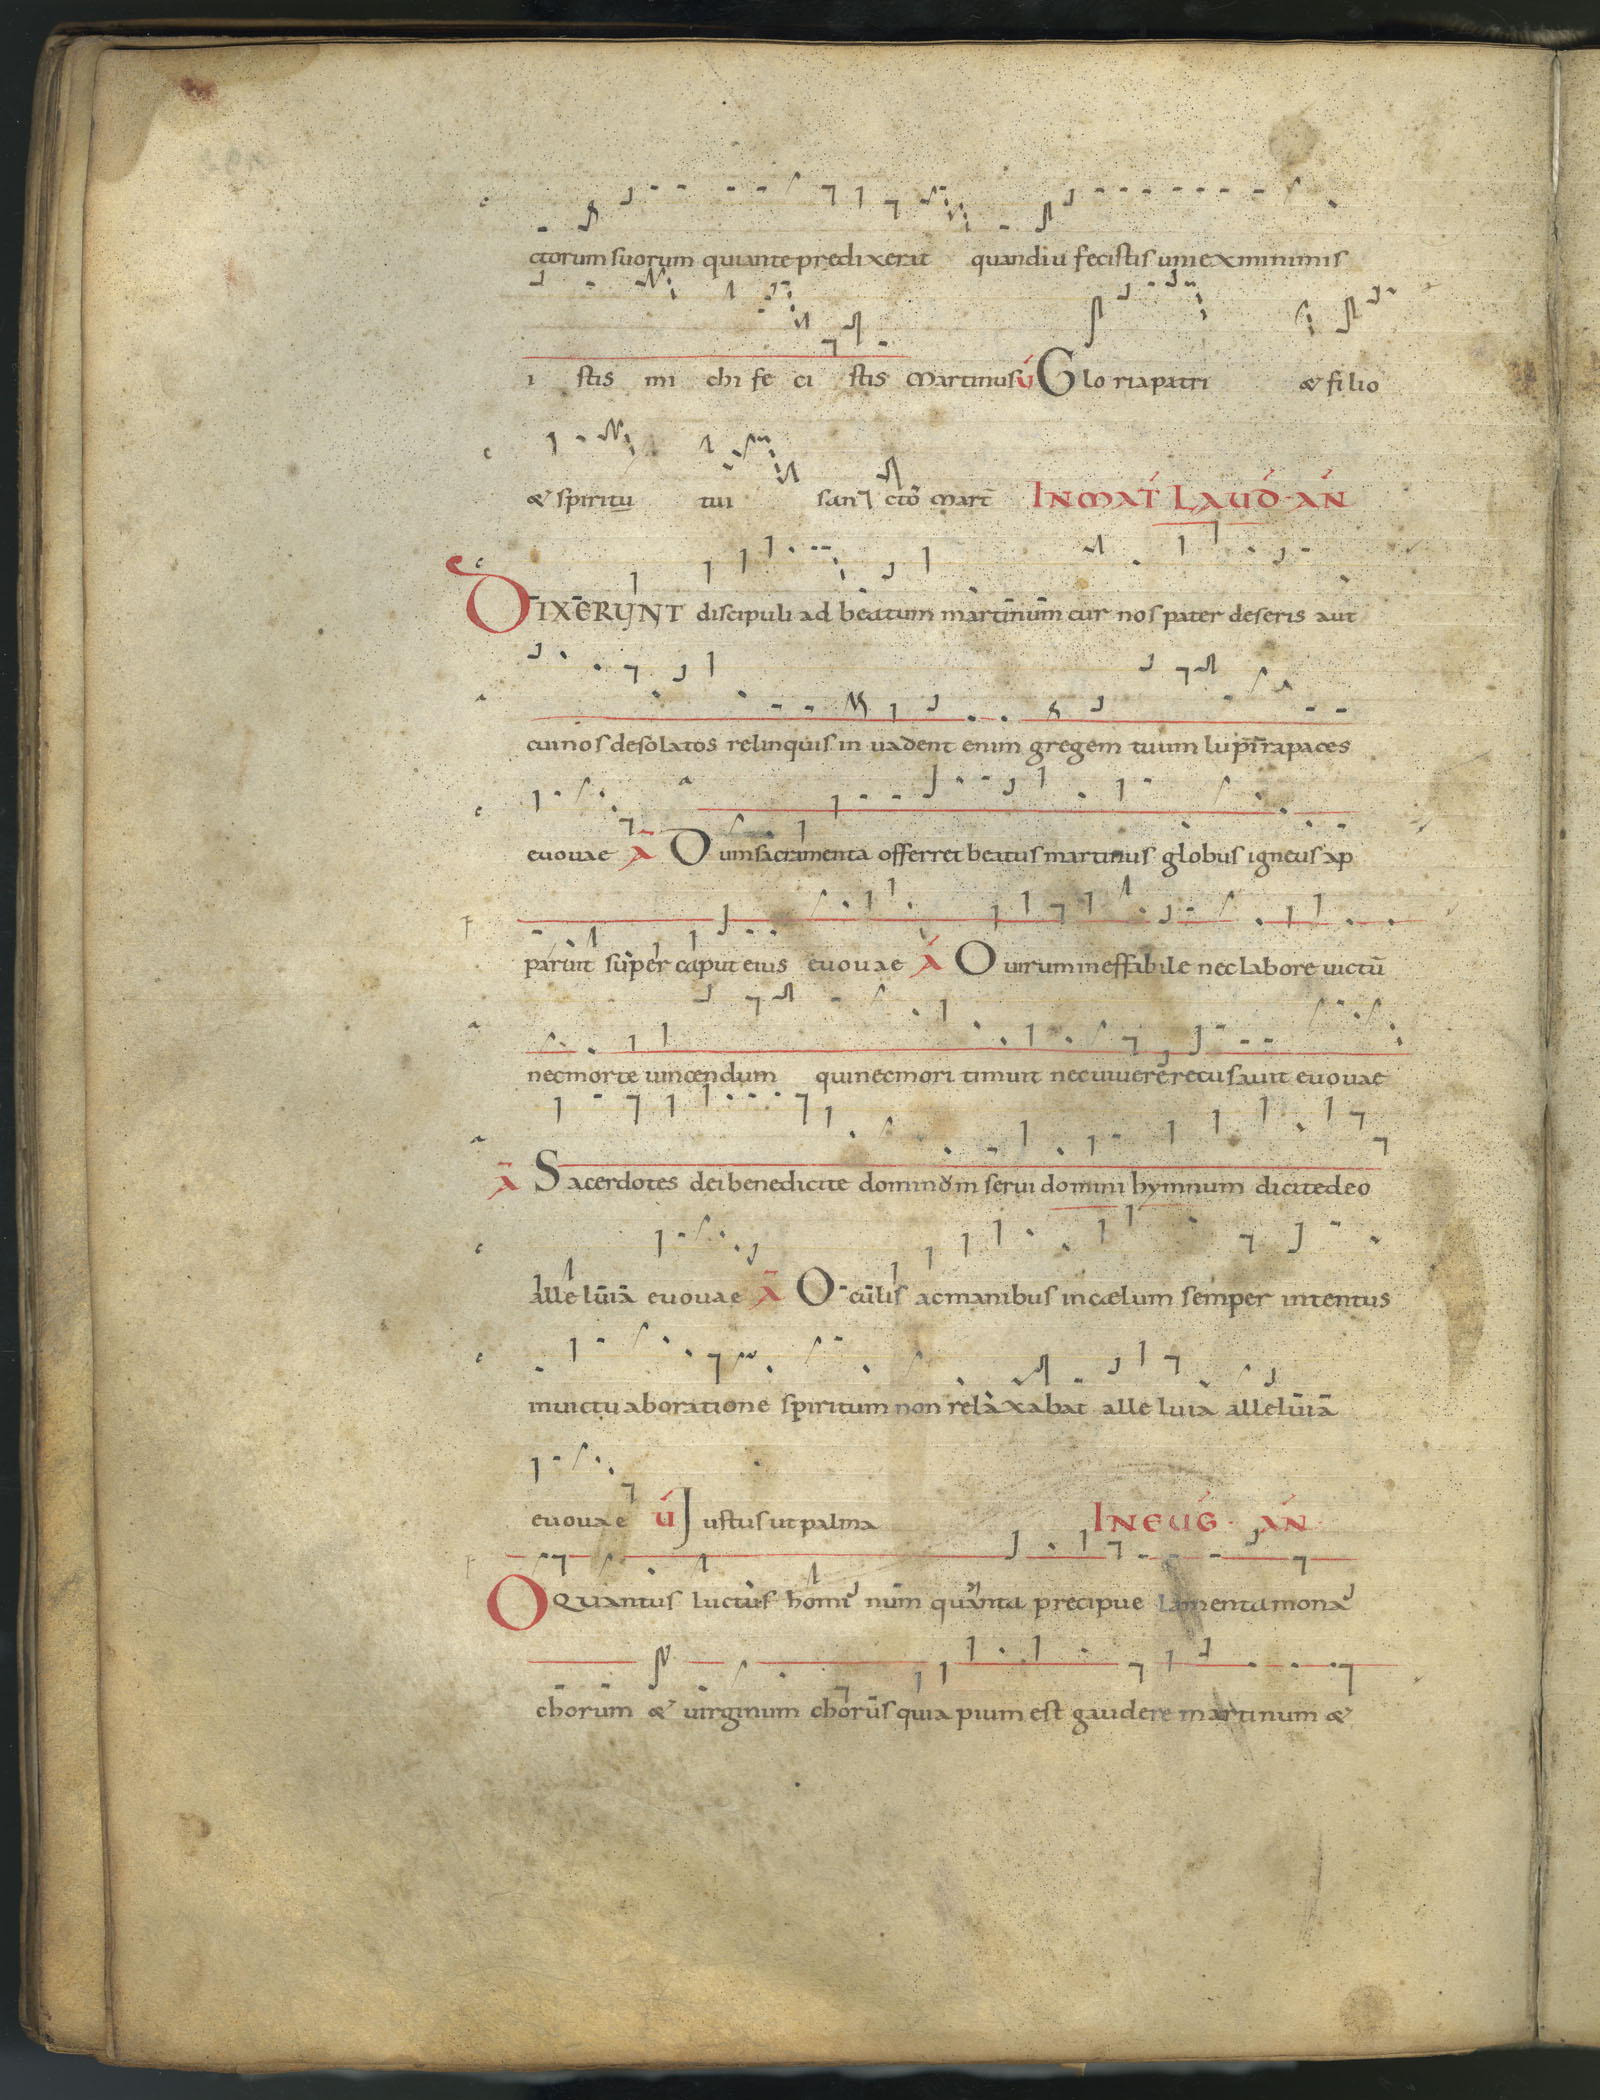 ctorum suorum quiante predixerat quandiu fecistis uniexminimis
i stis mi chi fe ci stis martinus ú Glo riapatri & filio
& spiritu tui san cto mart̄ INMAT́ LAUD́ AŃ
DIXERUNT discipuli ad beatum martinum cur nos pater deseris aut
cuinos desolatos relinquis in uadent enim gregem tuum lupi rapaces
euouae Ā Dumsacramenta offerret beatus martinus globus igneus ap
paruit super caput eius euouae Á O uirumineffabile neclabore uictū
necmorte uincendum quinecmori timuit necuiuere recusauit euouae
Ā Sacerdotes deibenedicite dominum serui domini hymnum dicitedeo
alle luia euouae Ā Oculis acmanibus incælum semper intentus
inuictu aboratione spiritum non relaxabat alle luia alleluia
euouae ú Justus utpalma INEUǴ AŃ
O QUantus luctus homi num quanta precipue lamentamona
chorum & uirginum chorus quia pium est gaudere martinum &